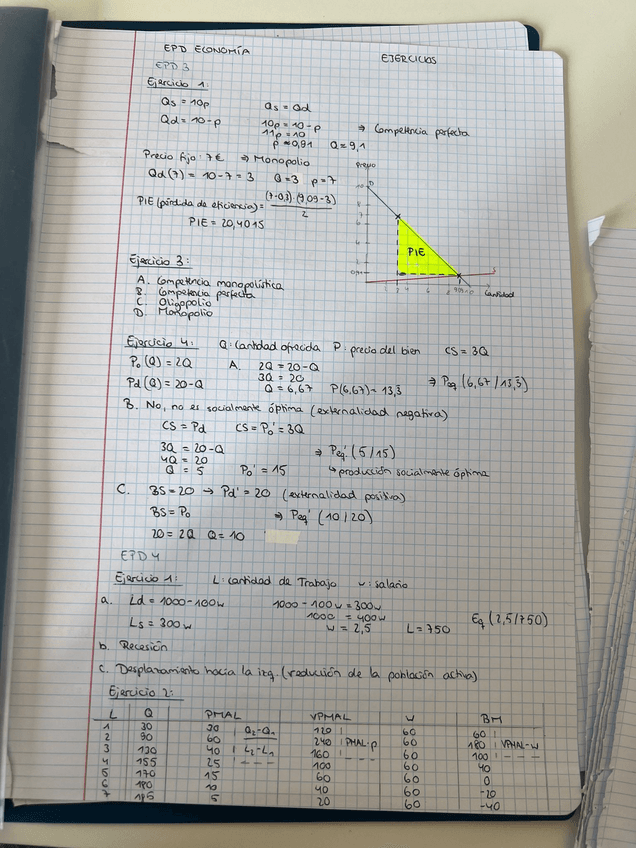 EPD ECONOMÍA
EJERCICIOS
EPD 3
Ejercicio 1:
Qs = 10p    Qs = Qd
Qd = 10-p    10p = 10-p    ⇒ Competencia perfecta
11p = 10
p ≈ 0,91    Q = 9,1
Precio fijo: 7€ ⇒ Monopolio
Qd(7) = 10-7 = 3    Q=3    p=7
PIE (pérdida de eficiencia) = (7-0,3)·(9,09-3) / 2
PIE = 20,4015
Precio
D
PIE
S
Cantidad
Ejercicio 3:
A. Competencia monopolística
B. Competencia perfecta
C. Oligopolio
D. Monopolio
Ejercicio 4:    Q: Cantidad ofrecida    P: precio del bien    CS = 3Q
Po(Q) = 2Q    A.    2Q = 20-Q
3Q = 20
Pd(Q) = 20-Q    Q = 6,67    P(6,67) = 13,3    ⇒ Peq (6,67/13,3)
B. No, no es socialmente óptima (externalidad negativa)
CS = Pd    CS = Po' = 3Q
3Q = 20-Q    ⇒ Peq' (5/15)
4Q = 20
Q = 5    Po' = 15    ↳ producción socialmente óptima
C.    BS = 20 → Pd' = 20 (externalidad positiva)
BS = Po    ⇒ Peq' (10/20)
20 = 2Q    Q = 10
EPD 4
Ejercicio 1:    L: cantidad de Trabajo    w: salario
a.    Ld = 1000-100w    1000-100w = 300w
1000 = 400w    Eq (2,5/750)
Ls = 300w    w = 2,5    L = 750
b. Recesión
c. Desplazamiento hacia la izq. (reducción de la población activa)
Ejercicio 2:
L    Q    PMAL    VPMAL    w    BM
1    30    30    Q2-Q1    120    60    60
2    90    60    240    PMAL·p    60    180    VPMAL-w
3    130    40    L2-L1    160    60    100
4    155    25    100    60    40
5    170    15    60    60    0
6    180    10    40    60    -20
7    185    5    20    60    -40